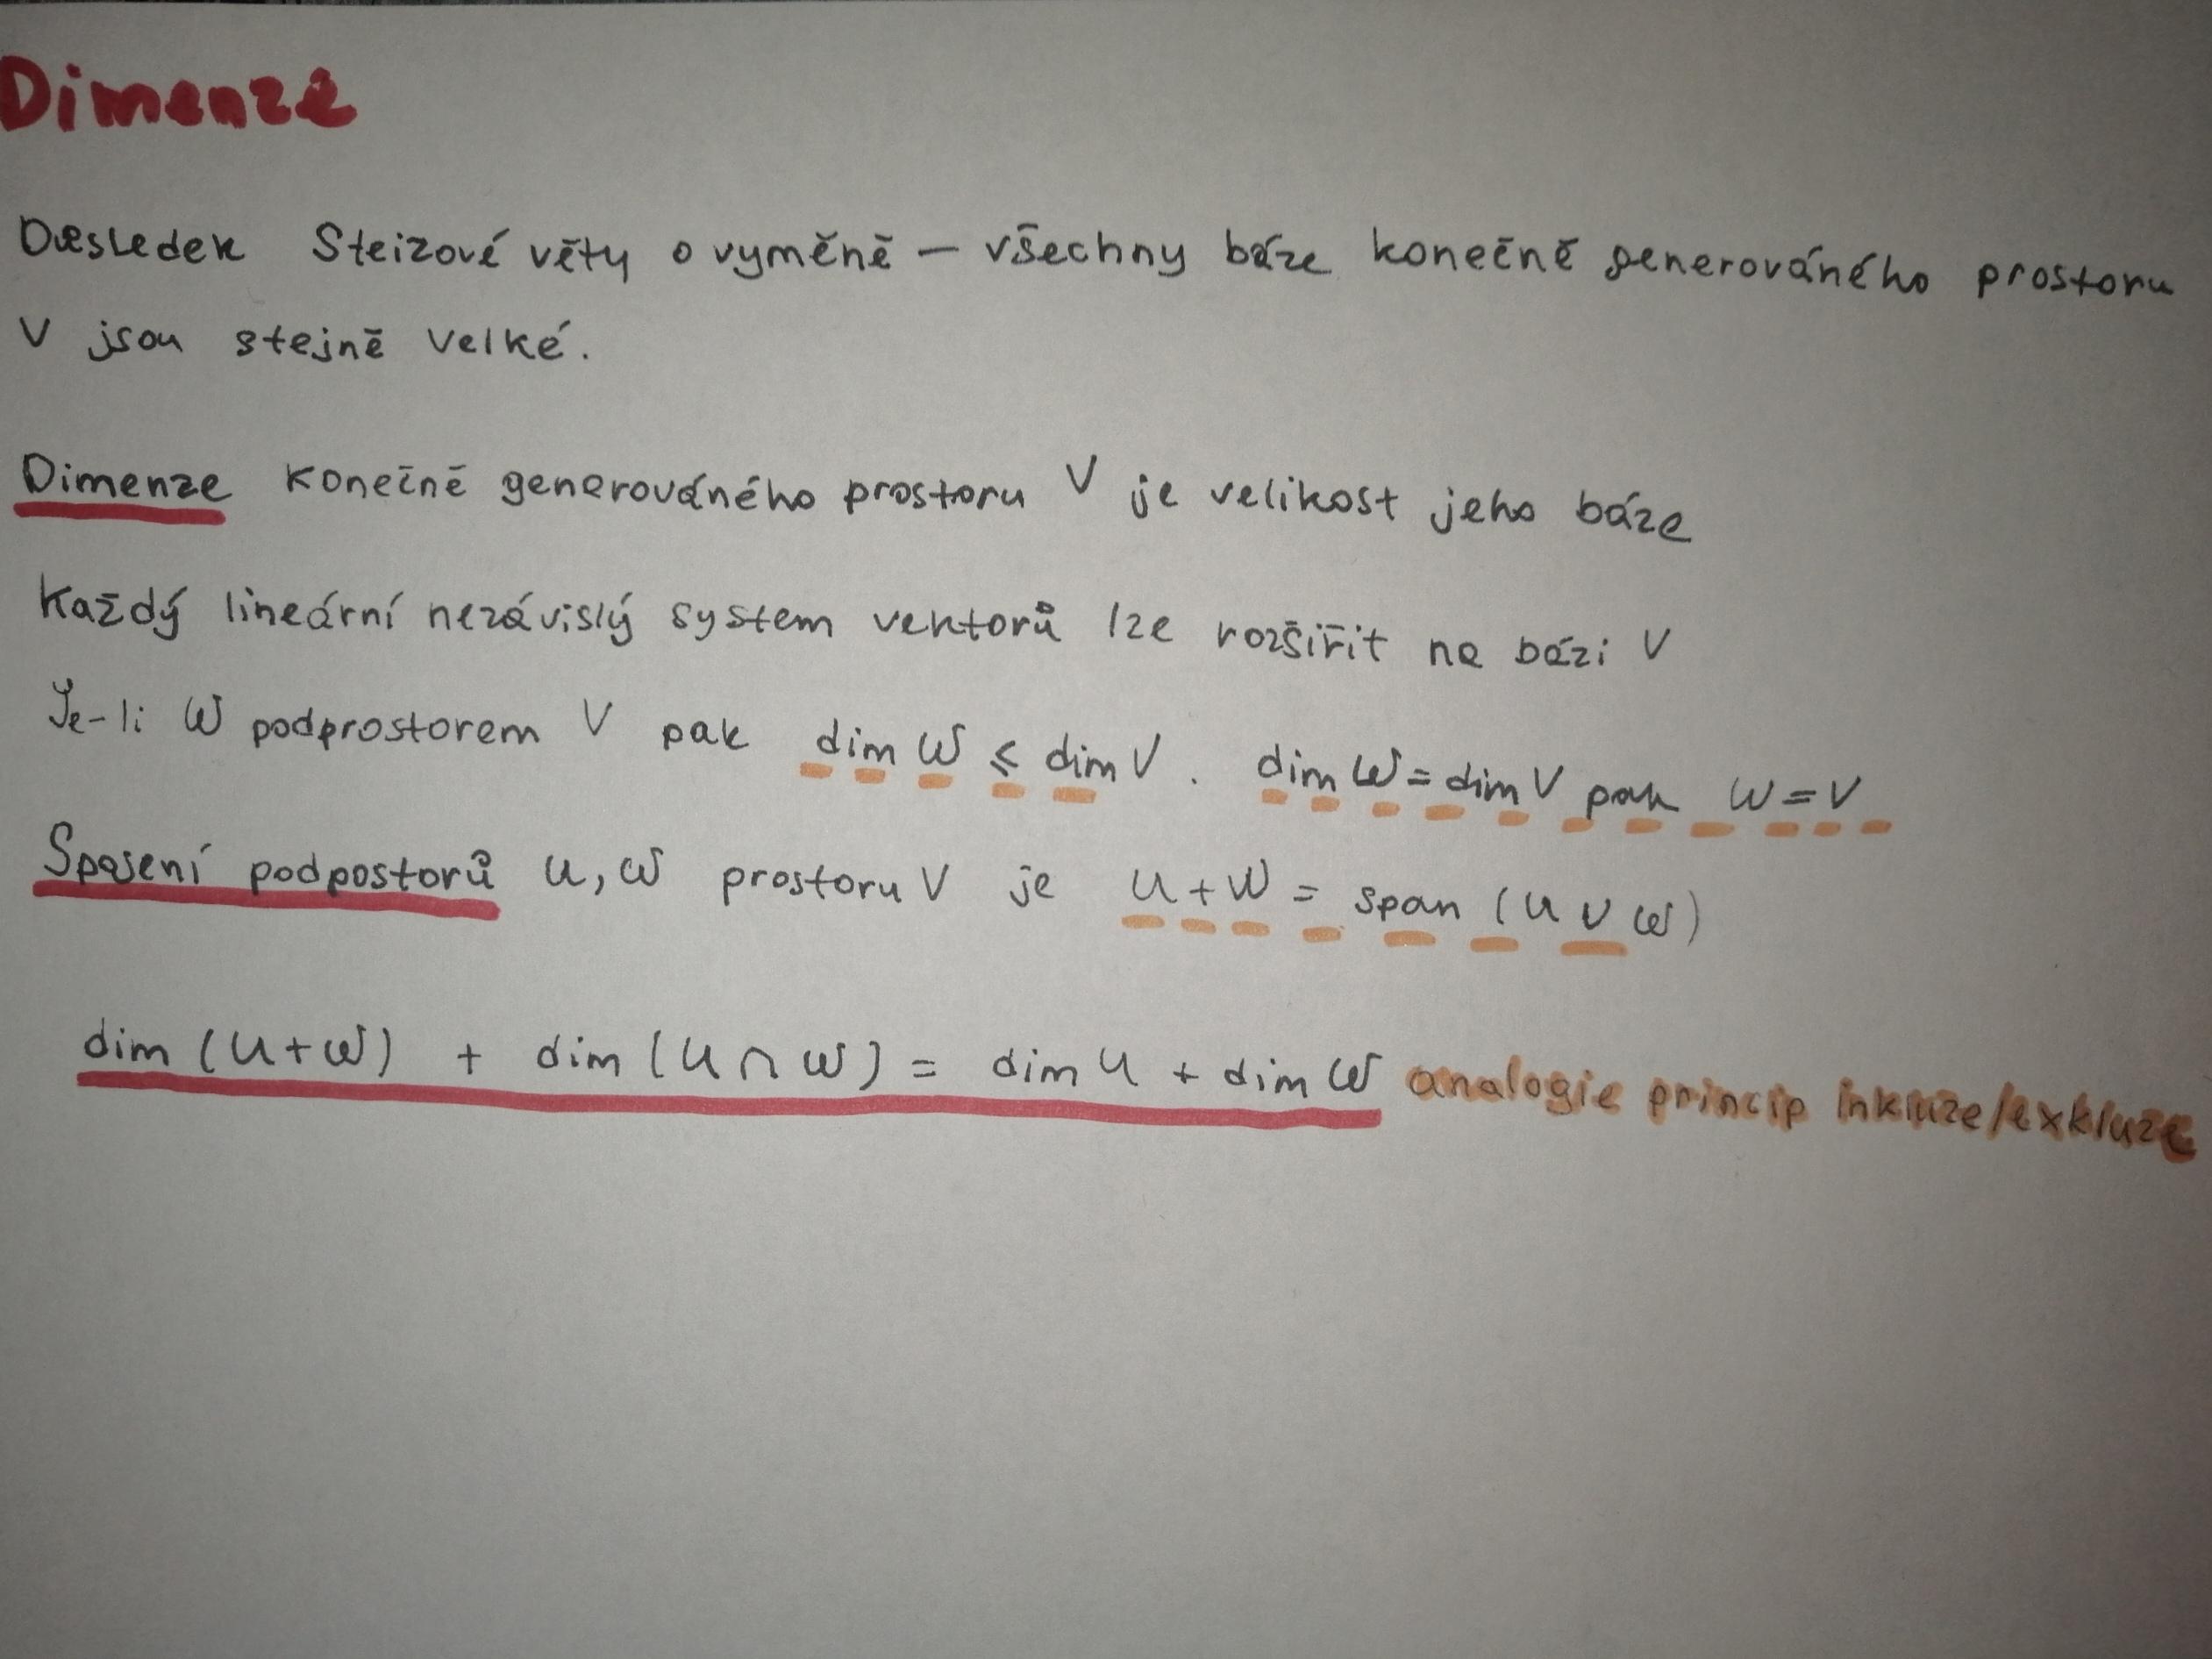 Dimenze
Důsledek Steizové věty o vyměně – všechny báze konečně generováného prostoru
V jsou stejně velké.
Dimenze konečně generováného prostoru V je velikost jeho báze
Každý lineární nezávislý system vektorů lze rozšířit na bázi V
Je-li W podprostorem V pak dim W ≤ dim V. dim W = dim V pak W = V
Spojení podpostorů U, W prostoru V je U + W = span (U ∪ W)
dim (U+W) + dim (U ∩ W) = dim U + dim W analogie princip inkluze/exkluze